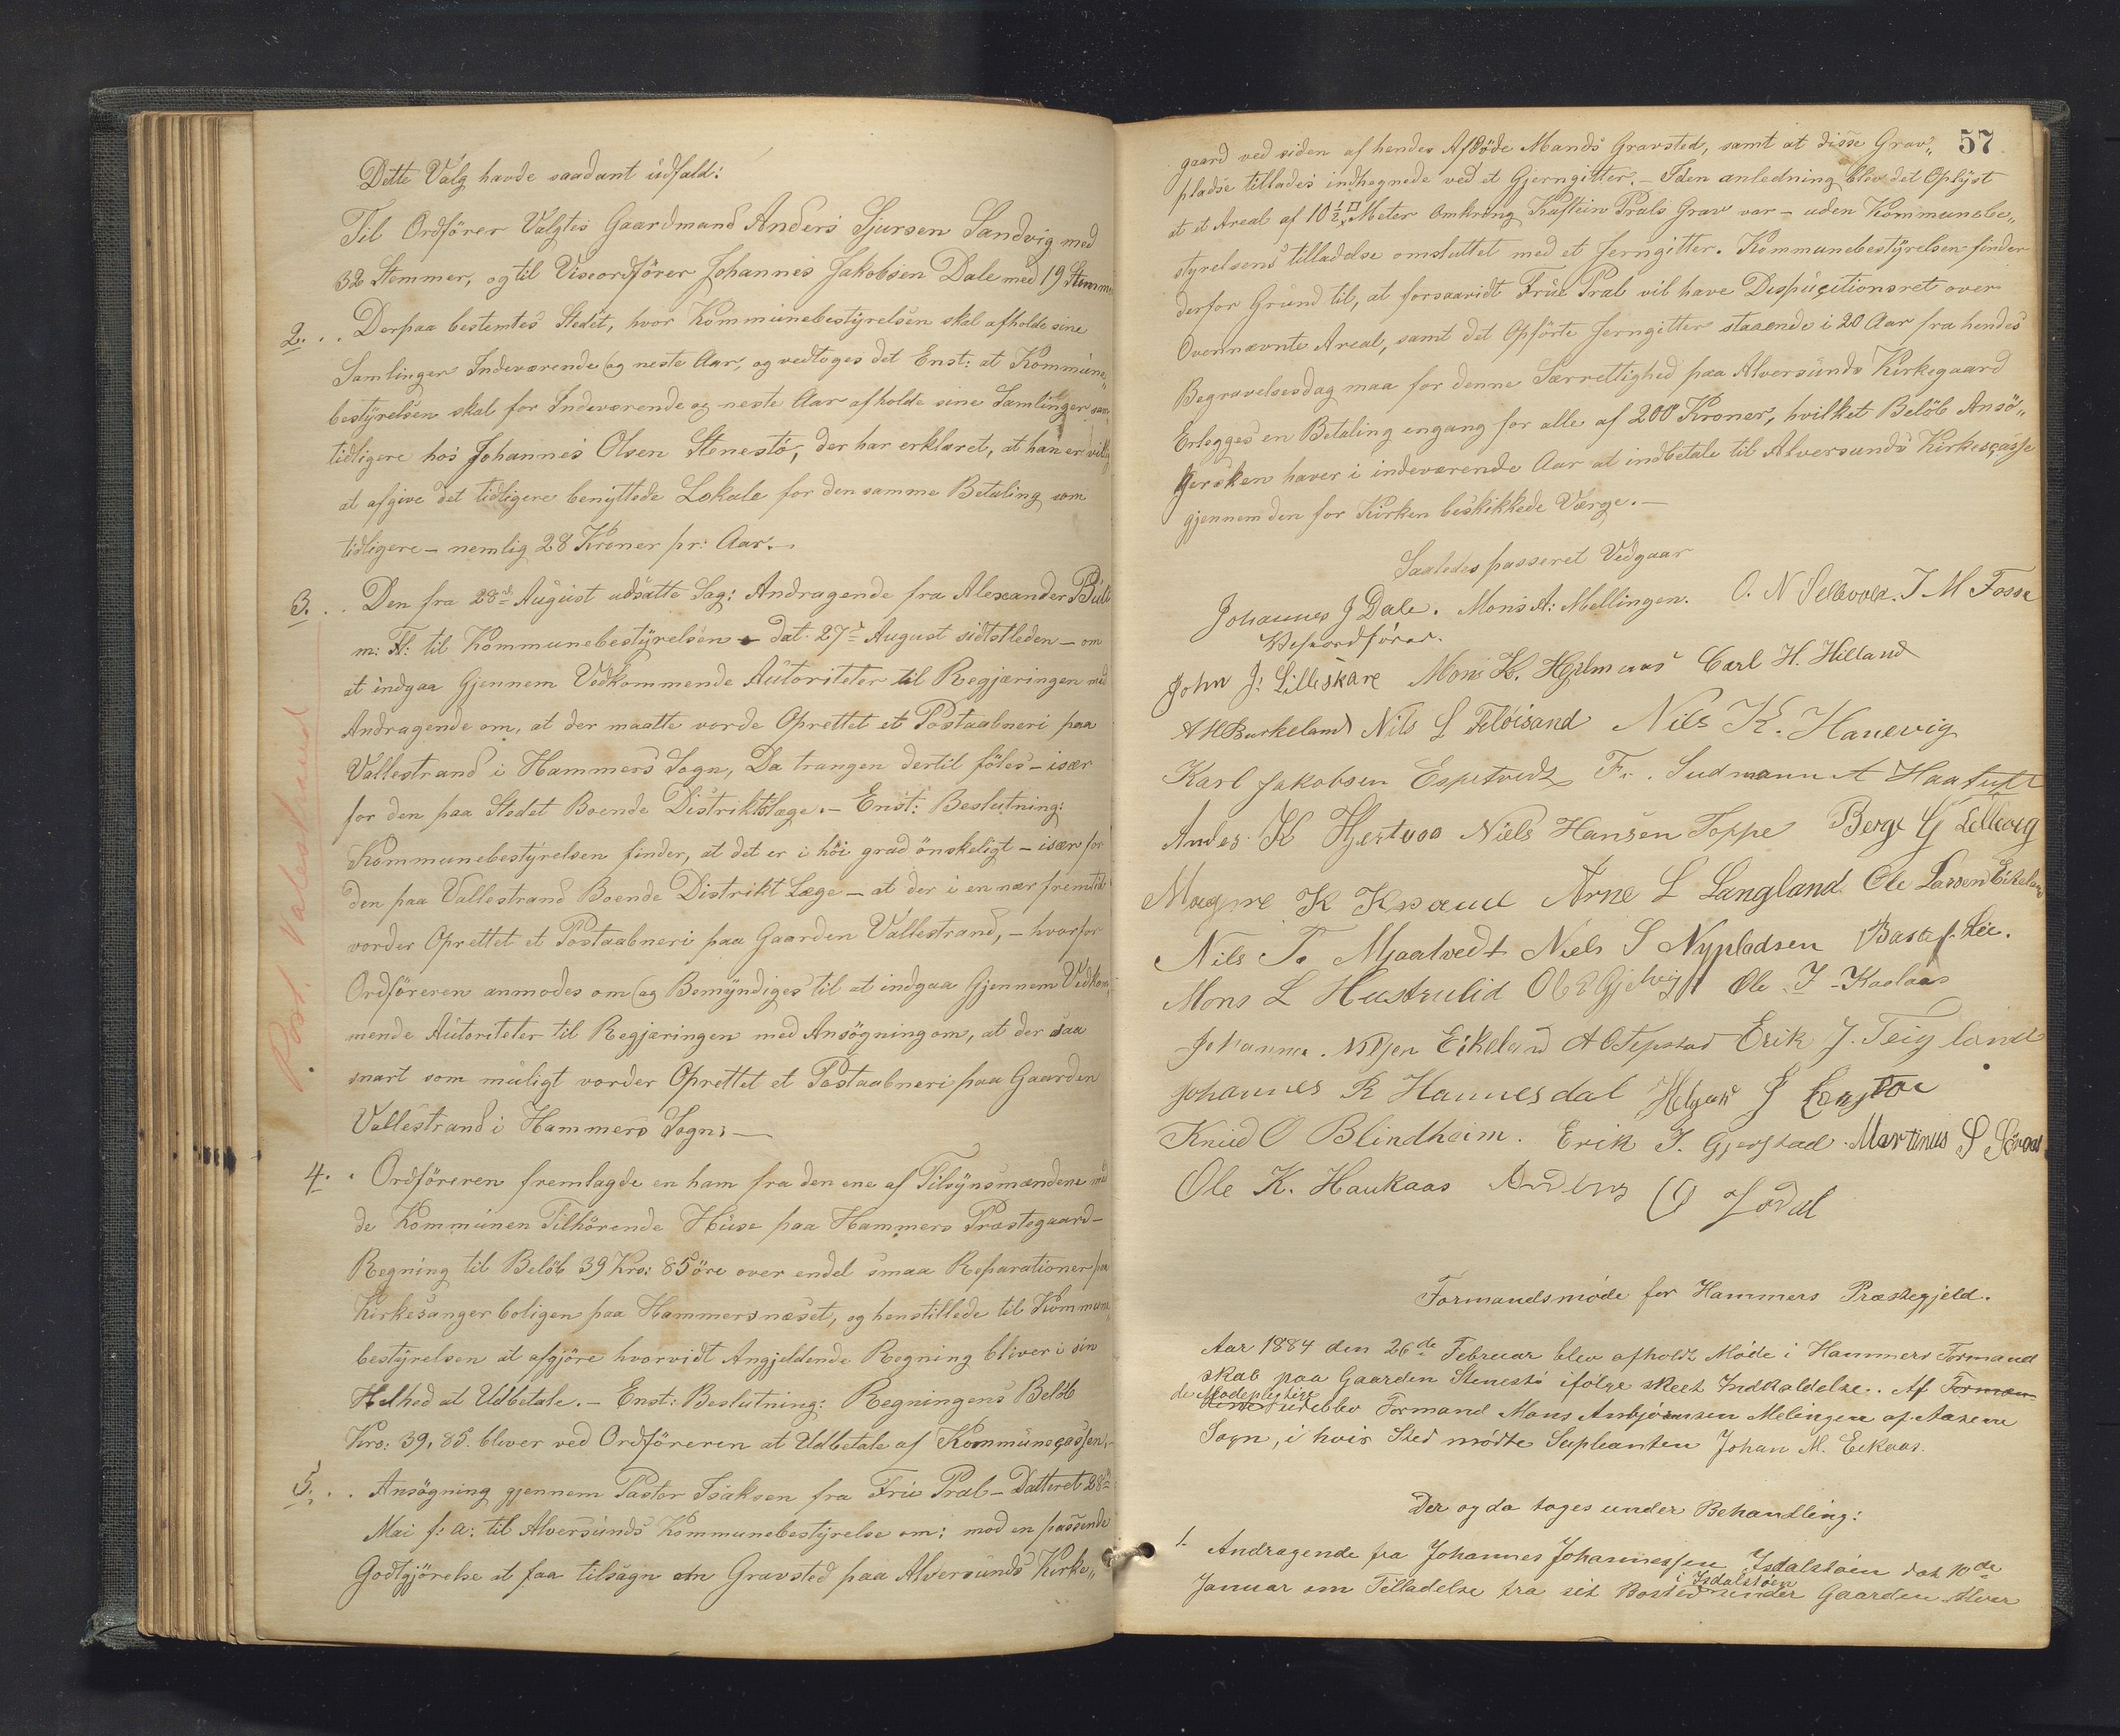 Dette Valg havde saadant udfald:
Til Ordförer Valgtes Gaardmand Anders Sjursen Sandvig med
32 Stemmer, og til Viseordförer Johannes Jakobsen Dale med 19 Stemmer
2. . . Derpaa bestemtes Stedet, hvor Kommunebestyrelsen skal afholde sine
Samlinger Indeværende og neste Aar, og vedtoges det Enst: at Kommune„
bestyrelsen skal for Indeværende og neste Aar afholde sine Samlinger som
tidligere hos Johannes Olsen Stenestö, der har erklæret, at han er villig
at afgive det tidligere benyttede Lokale for den samme Betaling som
tidligere – nemlig 28 Kroner pr: Aar. –
3. . . Den fra 28de August udsatte Sag: Andragende fra Alexander Bull
m: Fl: til Kommunebestyrelsen – dat. 27de August sidstleden – om
at indgaa Gjennem Vedkommende Autoriteter til Regjæringen med
Andragende om, at der maatte vorde Oprettet et Postaabneri paa
Vallestrand i Hammers Sogn, Da trangen dertil föles – især
for den paa Stedet Boende Distriktslæge. – Enst: Beslutning:
Kommunebestyrelsen finder, at det er i höi grad önskeligt – især for
den paa Vallestrand Boende Distrikt Læge – at der i en nær fremtid
vorder Oprettet et Postaabneri paa Gaarden Vallestrand, – hvorfor
Ordföreren anmodes om og Bemyndiges til at indgaa Gjennem Vedkom„
mende Autoriteter til Regjæringen med Ansögning om, at der saa
snart som muligt vorder Oprettet et Postaabneri paa Gaarden
Vallestrand i Hammers Sogn; –
Post. Valestrand
4. . Ordföreren fremlagde en ham fra den ene af Tilsynsmændene med
de Kommunen Tilhörende Huse paa Hammers Præstegaard –
Regning til Belöb 39 Kro: 85 öre over endel smaa Reparationer paa
Kirkesangerboligen paa Hammersnæset, og henstillede til Kommune„
bestyrelsen at afgjöre hvorvidt Angjeldende Regning bliver i sin
Helhed at Udbetale. – Enst: Beslutning: Regningens Belöb
Kro: 39,85. bliver ved Ordföreren at Udbetale af Kommunecassen, –
5. . . Ansögning gjennem Pastor Isaksen fra Frue Pral – Datteret 28de
Mai f: a: til Alversunds Kommunebestyrelse om; mod en passende
Godtgjörelse at faa tilsagn om Gravsted paa Alversunds Kirke„
57
gaard ved siden af hendes Afdöde Mands Gravsted, samt at disse Grav„
pladse tillades indhegnede ved et Gjerngitter. – I den anledning blev det Oplyst
at et Areal af 10 ½ □ Meter Omkring Kaftein Prals Grav var – uden Kommunebe„
styrelsens tilladelse omsluttet med et Jerngitter. Kommunebestyrelsen finder
derfor Grund til, at forsaavidt Frue Pral vil have Dispucitionsret over
Ovennævnte Areal, samt det Opförte Jerngitter staaende i 20 Aar fra hendes
Begravelsesdag maa for denne Særrettighed paa Alversunds Kirkegaard
Erlegges en Betaling engang for alle af 200 Kroner, hvilket Belöb Ansö„
gersken haver i indeværende Aar at indbetale til Alversunds Kirkecasse
gjennem den for Kirken beskikkede Værge. –
Saaledes passeret Vedgaar
Johannes J Dale. Mons A: Mellingen. O. N Sellevold. J M Fosse
Viseordförer.
John J: Lilleskare Mons K. Hjelmaas Carl H. Hilland
A H Burkeland Nils L Flöisand Nils K. Hanevig
Karl Jakobsen Espetvedt Fr. Sudmann A Haatuft
Andes. K Hjertaas Niels Hansen Toppe Berge G Lellevig
Magne K Arne L Langland Ole Larsen Eikeland
Nils T. Mjaatvedt Niels S Nypladsen Lie.
Mons L Hustrulid Ole J
Johannes. Nilsen Eikeland Erik J. Teigland
Johannes R Hannesdal Helge
Knud O Blindheim. Erik J. Gjerstad Martinus S
Ole K. Haukaas Anders O
Formandsmöde for Hammers Præstegjeld.
Aar 1884 den 26de Februar blev afholdt Möde i Hammers Formand
skab paa Gaarden Stenestö ifölge skeet Indkaldelse. Af Formæn
de Mödepligtige udeblev Formand Mons Anbjörnsen Melingen af Aasene
Sogn, i hvis Sted mödte Supleanten Johan M. Eekaas.
Der og da toges under Behandling:
1. Andragende fra Johannes Johannessen Isdalstöen dat 10de
Januar om Tilladelse fra sit Bosted i Isdalstöen under Gaarden Alver